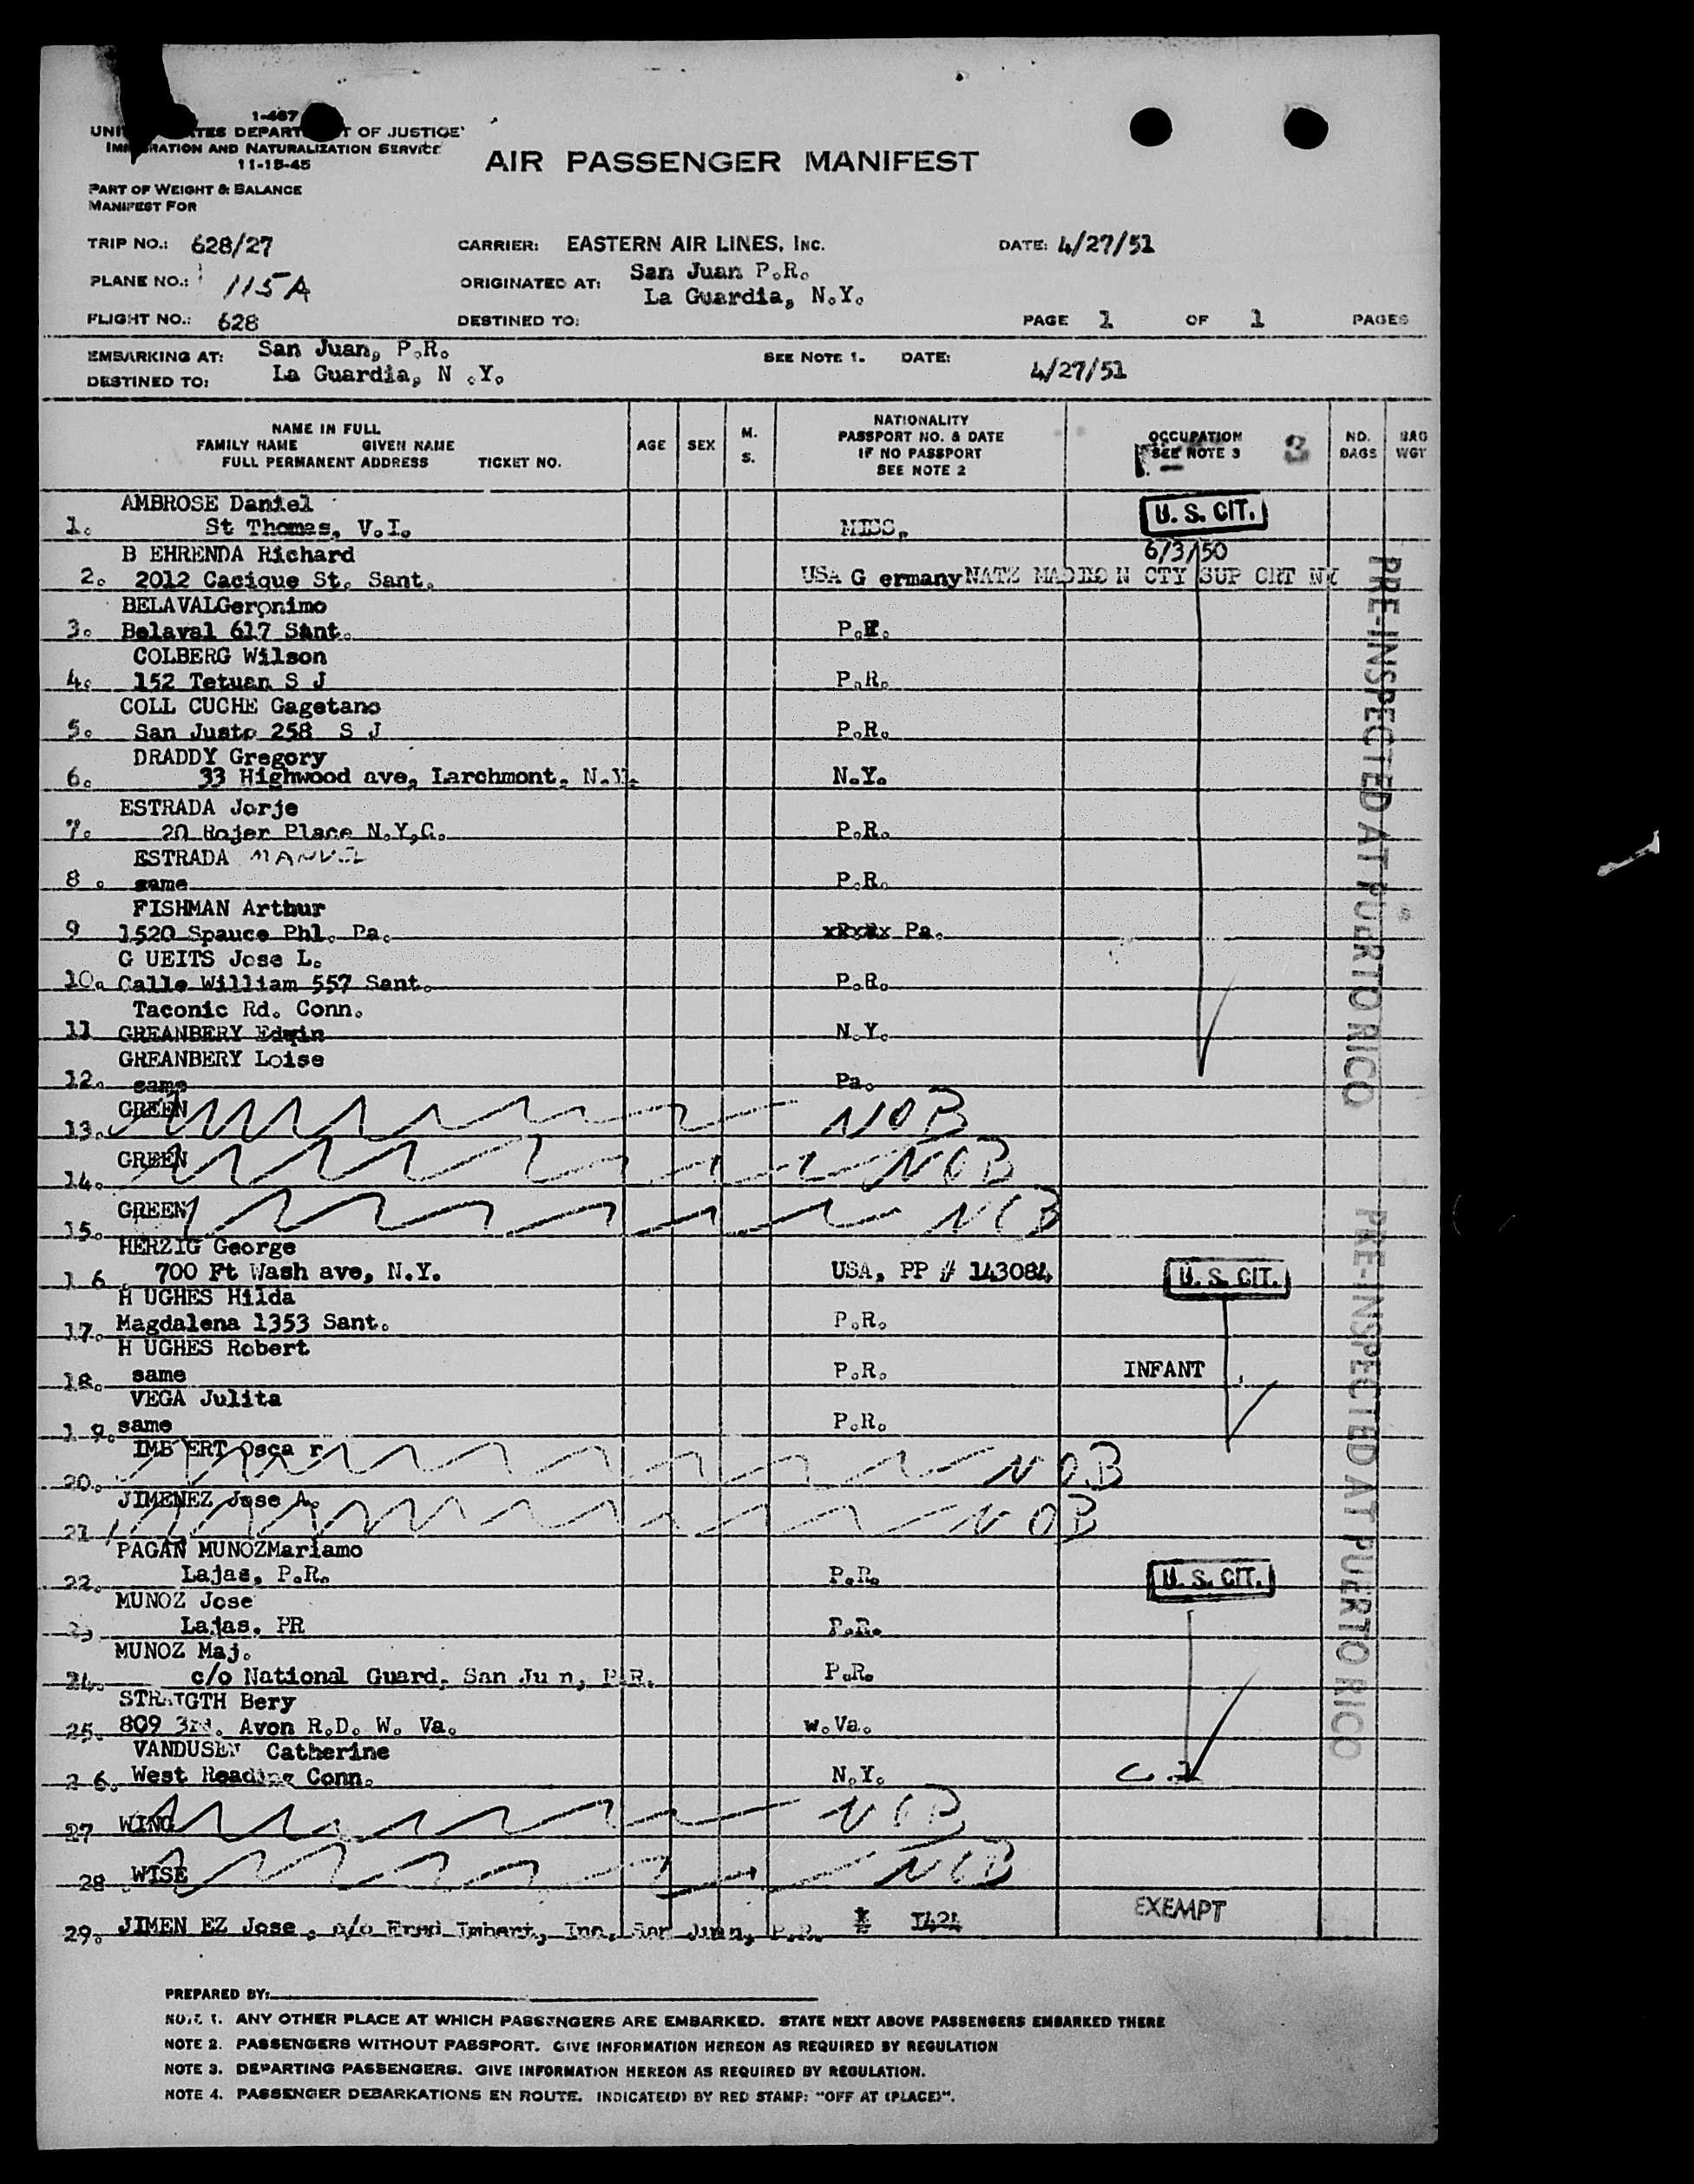 1-467
UNITED STATES DEPARTMENT OF JUSTICE
IMMIGRATION AND NATURALIZATION SERVICE
11-15-45
AIR PASSENGER MANIFEST
PART OF WEIGHT & BALANCE
MANIFEST FOR
TRIP NO.: 628/27 CARRIER: EASTERN AIR LINES, INC. DATE: 4/27/51
PLANE NO.: 115A ORIGINATED AT: San Juan P.R.
La Guardia, N.Y.
FLIGHT NO.: 628 DESTINED TO: PAGE 1 OF 1 PAGES
EMBARKING AT: San Juan, P.R. SEE NOTE 1. DATE: 4/27/51
DESTINED TO: La Guardia, N .Y.
NAME IN FULL
FAMILY NAME GIVEN NAME
FULL PERMANENT ADDRESS TICKET NO.
AGE
SEX
M.
S.
NATIONALITY
PASSPORT NO. & DATE
IF NO PASSPORT
SEE NOTE 2
OCCUPATION
SEE NOTE 3
3
NO.
BAGS
BAG
WGT
AMBROSE Daniel
1. St Thomas, V.I. MISS. U. S. CIT.
B EHRENDA Richard 6/3/50
2. 2012 Cacique St. Sant. USA G ermany NATZ MADISON CTY SUP CRT NY
BELAVALGeronimo
3. Belaval 617 Sant. P.R.
COLBERG Wilson
4. 152 Tetuan S J P.R.
COLL CUCHE Gagetano
5. San Justo 258 S J P.R.
DRADDY Gregory
6. 33 Highwood ave, Larchmont, N.Y. N.Y.
ESTRADA Jorje
7. 20 Rojer Place N.Y.C. P.R.
ESTRADA MANUEL
8. same P.R.
FISHMAN Arthur
9 1520 Spauce Phl. Pa. Pa.
G UEITS Jose L.
10. Calle William 557 Sant. P.R.
Taconic Rd. Conn.
11 GREANBERY Edwin N.Y.
GREANBERY Loise
12. same Pa.
GREEN
13. NOB
GREEN
14. NOB
GREEN
15. NOB
HERZIG George
16. 700 Ft Wash ave, N.Y. USA, PP # 143084 U. S. CIT.
H UGHES Hilda
17. Magdalena 1353 Sant. P.R.
H UGHES Robert
18. same P.R. INFANT
VEGA Julita
19. same P.R.
IMB ERT Osca r
20. NOB
JIMENEZ Jose A.
21 NOB
PAGAN MUNOZMariamo
22. Lajas, P.R. P.R. U. S. CIT.
MUNOZ Jose
23. Lajas, PR P.R.
MUNOZ Maj.
24. c/o National Guard, San Ju n, P.R. P.R.
Bery
25. 809 3rd. Avon R.D. W. Va. W.Va.
VANDUSEN Catherine
26. West Reading Conn. N.Y.
27 WING NOB
28. WISE NOB
29. JIMEN EZ Jose, c/o Fred Imbert, Inc. San Juan, P.R. I424 EXEMPT
PRE-INSPECTED AT PUERTO RICO
PRE-INSPECTED AT PUERTO RICO
PREPARED BY:
NOTE 1. ANY OTHER PLACE AT WHICH PASSENGERS ARE EMBARKED. STATE NEXT ABOVE PASSENGERS EMBARKED THERE
NOTE 2. PASSENGERS WITHOUT PASSPORT. GIVE INFORMATION HEREON AS REQUIRED BY REGULATION
NOTE 3. DEPARTING PASSENGERS. GIVE INFORMATION HEREON AS REQUIRED BY REGULATION.
NOTE 4. PASSENGER DEBARKATIONS EN ROUTE. INDICATE(D) BY RED STAMP: "OFF AT (PLACE)".